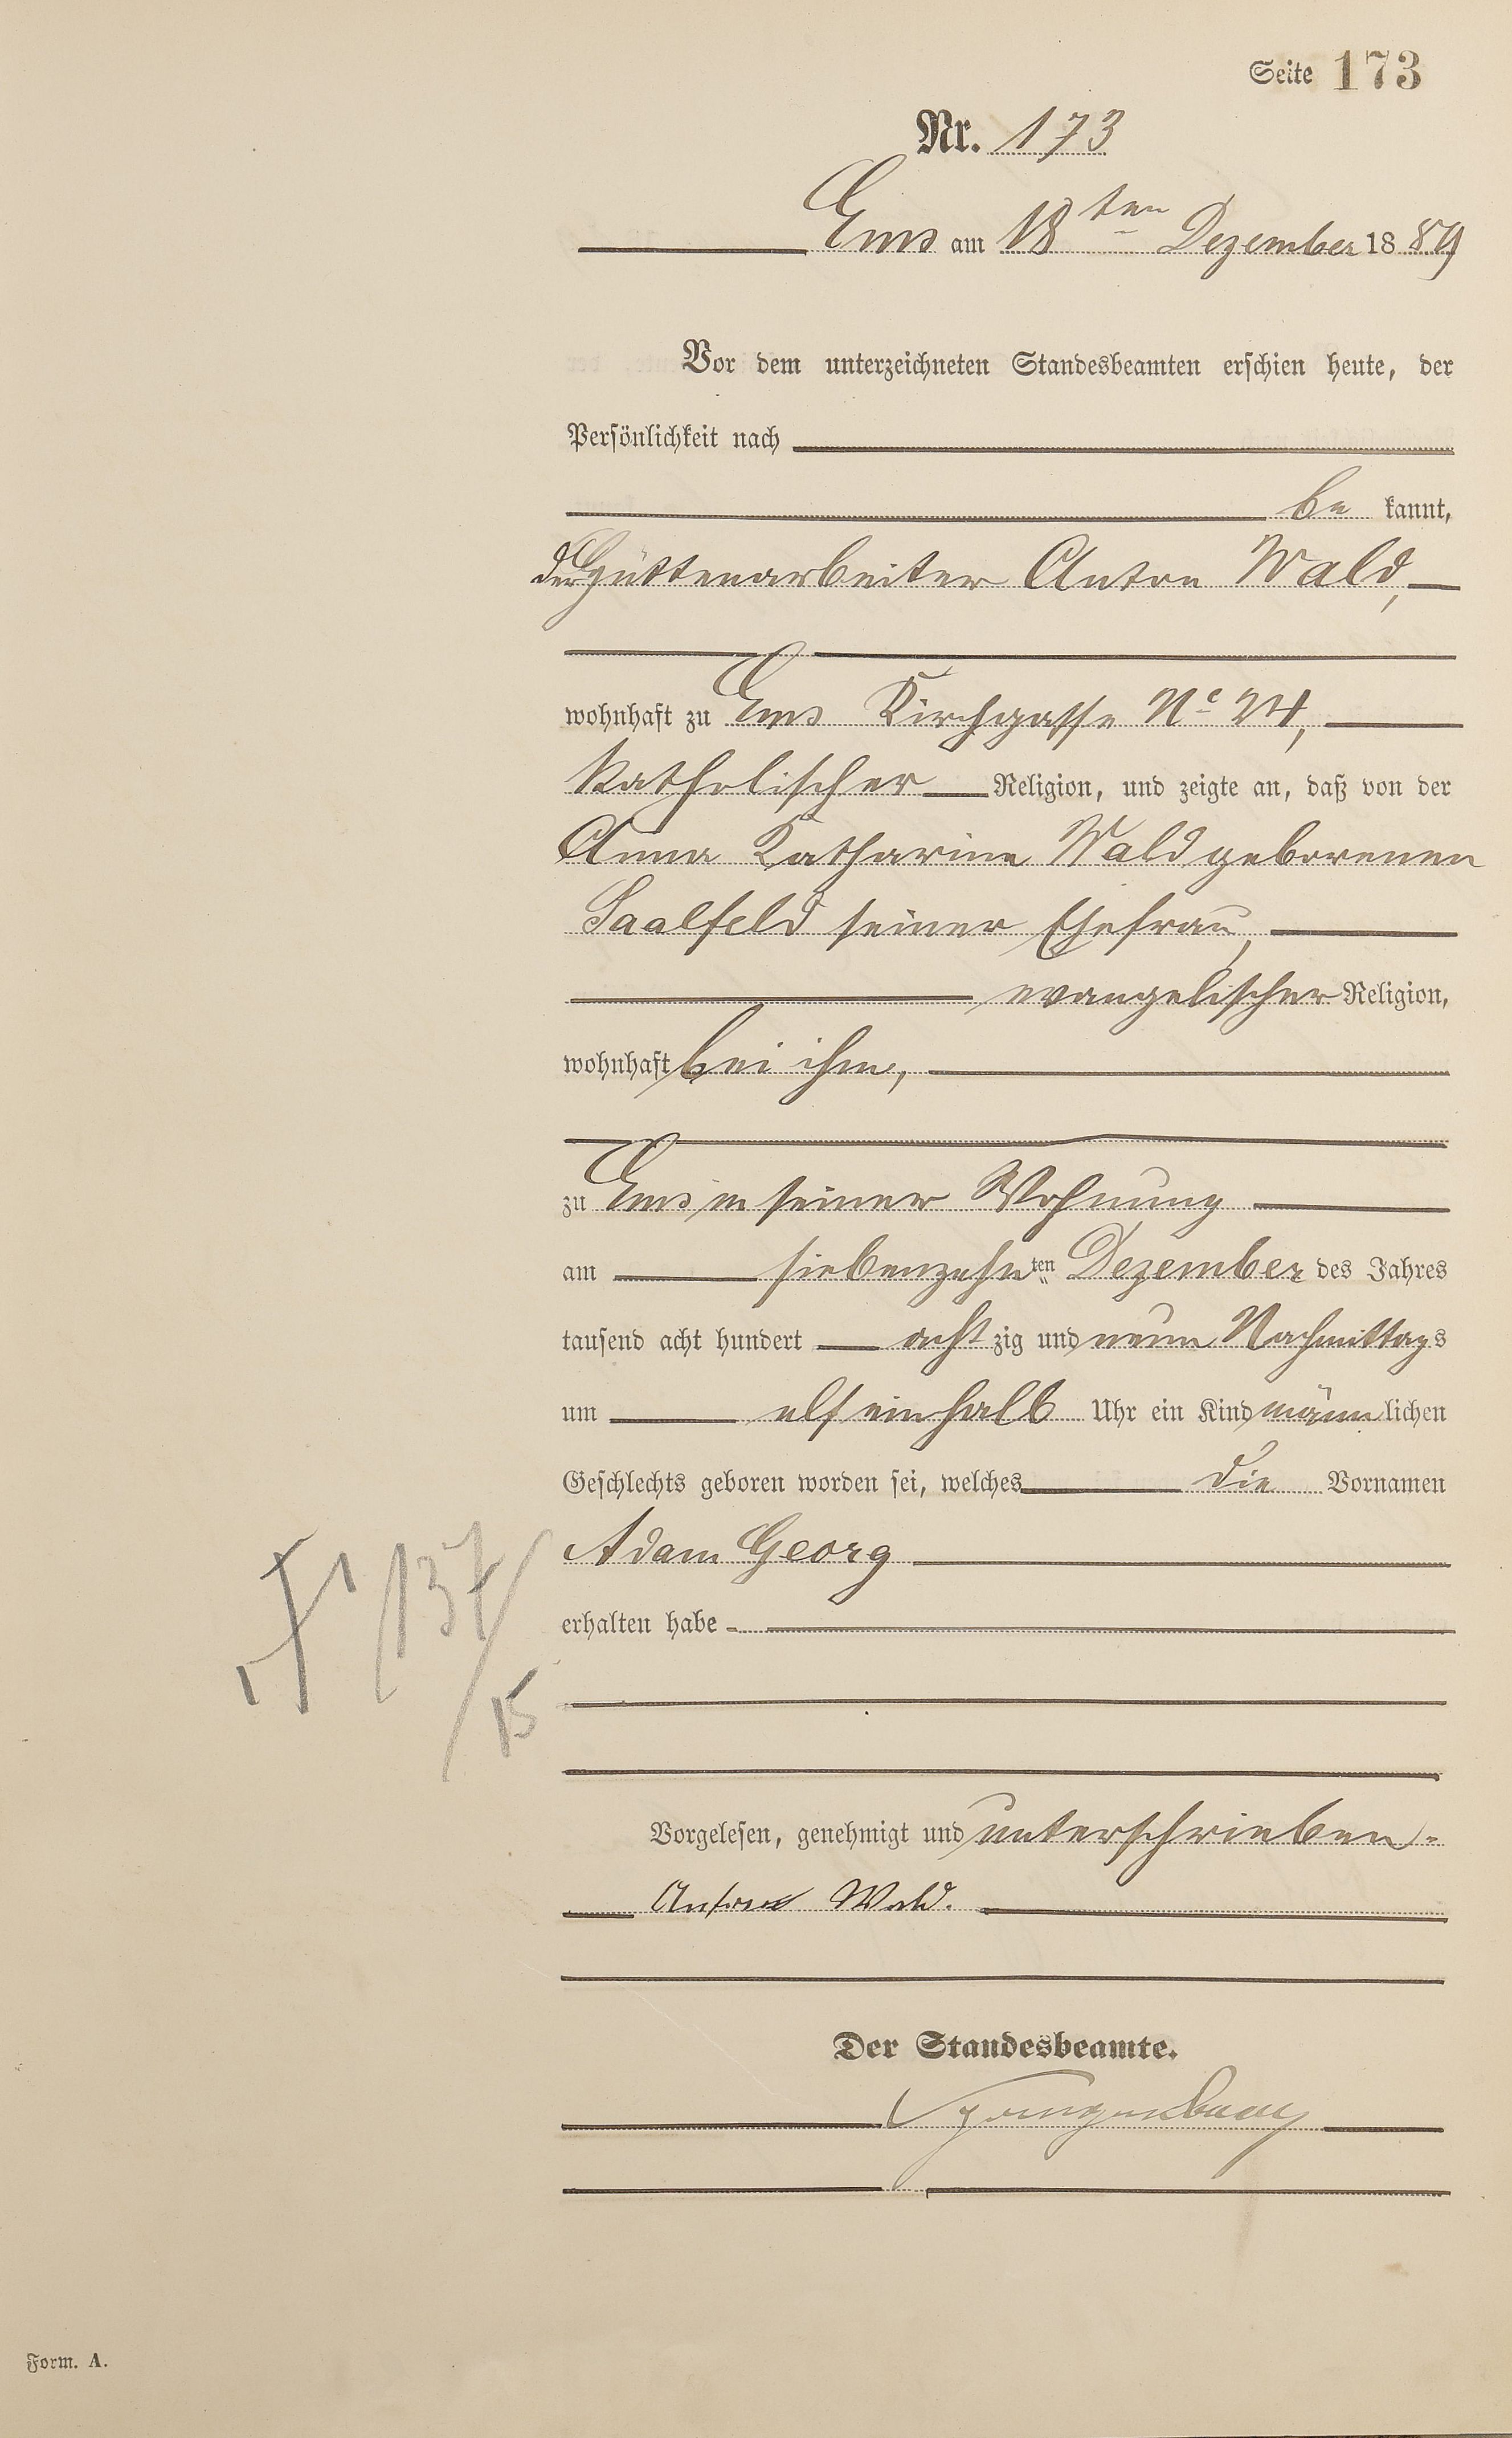 Seite 173
Nr. 173
Ems am 18ten Dezember 1889
Vor dem unterzeichneten Standesbeamten erschien heute, der
Persönlichkeit nach
be kannt,
der Hüttenarbeiter Anton Wald,
wohnhaft zu Ems Kirchgasse No 24,
katholischer Religion, und zeigte an, daß von der
Anna Katharine Wald geborenen
Saalfeld seiner Ehefrau,
evangelischer Religion,
wohnhaft bei ihm,
zu Ems in seiner Wohnung
am siebenzehnten Dezember des Jahres
tausend acht hundert acht zig und neun Nachmittags
um elf einhalb Uhr ein Kind männ lichen
Geschlechts geboren worden sei, welches die Vornamen
Adam Georg
erhalten habe
137/15
Vorgelesen, genehmigt und unterschrieben.
Anton Wald.
Der Standesbeamte.
Form. A.